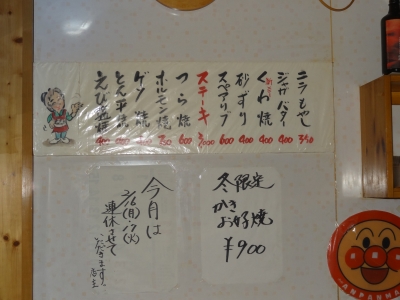 ニラもやし 350
ジャガバター 400
くわ焼 400
砂ずり 400
スペアリブ 600
ステーキ 1000
つら焼 600
ホルモン焼
ゲソ焼 400
とん平焼 400
えび塩焼 400
冬限定
かき
お好焼
¥900
今月は
2/16(月)・17(火)
連休させて
いただきます。
店主
ANPANMAN